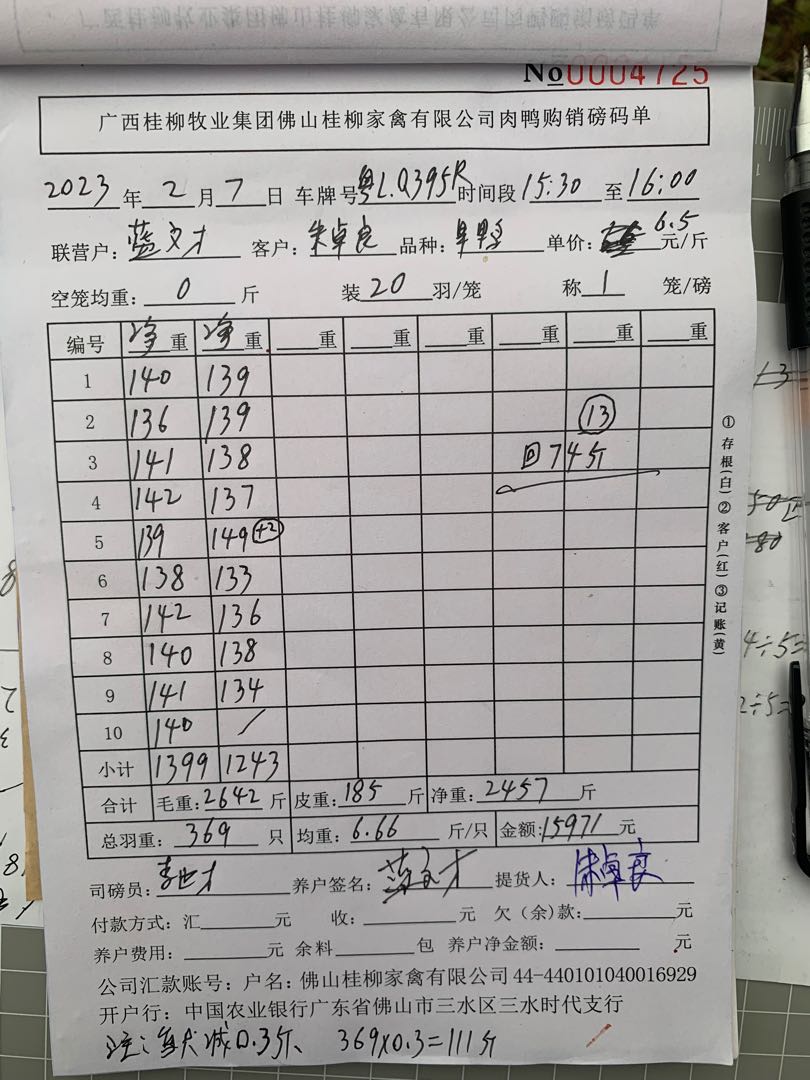 No 0004725
广西桂柳牧业集团佛山桂柳家禽有限公司肉鸭购销磅码单
2023年2月7日 车牌号粤L.Q395R时间段15:30至16:00
联营户:蓝文才 客户:朱卓良 品种: 单价:6.5元/斤
空笼均重:0斤 装20羽/笼 称1笼/磅
编号 净重 净重 重 重 重 重 重 重
1 140 139
2 136 139 13
3 141 138 回74斤
4 142 137
5 139 149 +2
6 138 133
7 142 136
8 140 138
9 141 134
10 140 /
小计 1399 1243
合计 毛重:2642斤 皮重:185斤 净重:2457斤
总羽重:369只 均重:6.66斤/只 金额:15971元
司磅员:李世才 养户签名:蓝文才 提货人:朱卓良
付款方式:汇 元 收: 元 欠(余)款: 元
养户费用: 元 余料 包 养户净金额: 元
公司汇款账号:户名:佛山桂柳家禽有限公司44-440101040016929
开户行:中国农业银行广东省佛山市三水区三水时代支行
注:每只减0.3斤、 369×0.3=111斤
①存根(白)②客户(红)③记账(黄)